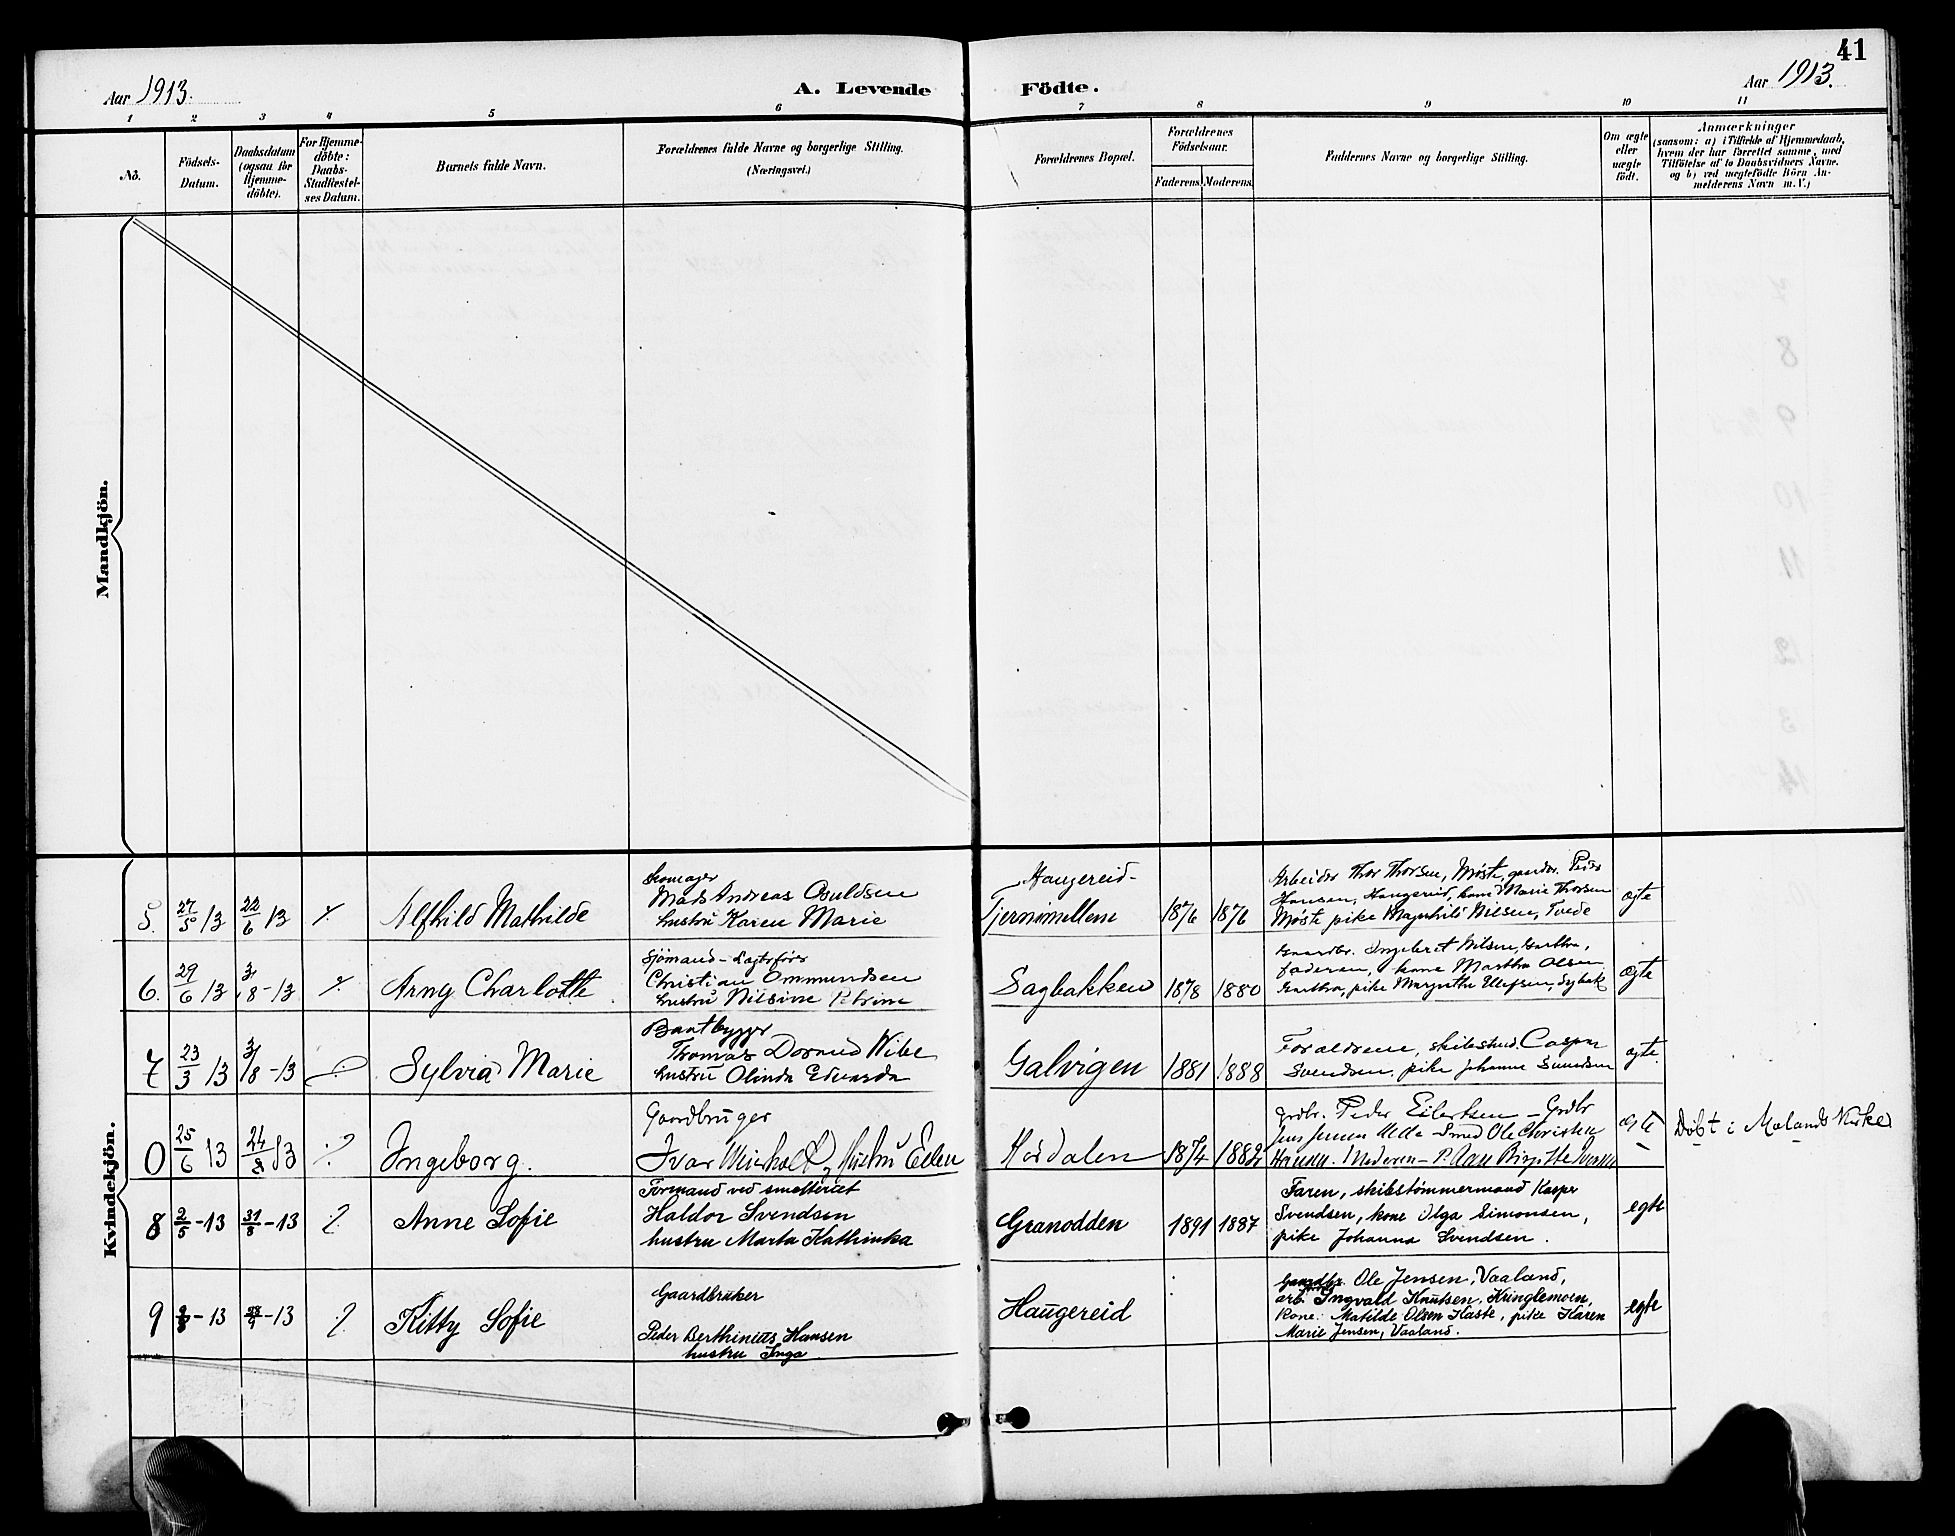 41
Aar 1913.
A. Levende Födte.
Aar 1913.
1 2 3 4 5 6 7 8 9 10 11
No.
Födsels-
Datum.
Daabsdatum
(ogsaa for
Hjemme-
döbte).
For Hjemme-
döbte:
Daabs-
Stadfæstel-
ses Datum.
Barnets fulde Navn.
Forældrenes fulde Navne og borgerlige Stilling.
(Næringsvei.)
Forældrenes Bopæl.
Forældrenes
Födselsaar.
Faderens. Moderens.
Faddernes Navne og borgerlige Stilling.
Om ægte
eller
uægte
födt.
Anmærkninger
(saasom: a) i Tilfælde af Hjemmedaab,
hvem der har forrettet samme, med
Tilföielse af to Daabsvidners Navne.
og b) ved uægtefödte Börn An-
melderens Navn m. V.)
Mandkjön.
Kvindekjön.
5. 27/5 13 22/6 13 Alfhild Mathilde
Skomager
Mads Andreas Osuldsen
hustru Karen Marie
Haugereid-
Tjernsmellene
1876 1876
Arbeider Thor Thorsen, Møste, gaardbr. Peder
Hansen, Haugereid, kone Marie Thorsen
Møste pike Magnhild Nilsen, Tvede
ægte
6. 29/6 13 3/8-13 Arny Charlotte
Sjömand-
Christian Ommundsen
hustru Nilsine Petrine
Sagbakken 1878 1880
Gaardbr. Ingebret Nilsen,
faderen, kone Martha Olsen
pike Margrethe Ellefsen,
ægte
7 23/3 13 3/8-13 Sylvia Marie
Baatbygger
Thomas Wibe
hustru Olinda Edvarda
Galvigen 1881 1888
Forældrene, Caspar
Svendsen, pike Johanne Svendsen
ægte.
0 25/6 13 24/8 13 Ingeborg.
Gaardbruger
Ivar Hustru Ellen
1874 1882
Grdbr. Peder Eilertsen - Grdbr
Jens Jensen Smed Ole Christian
Hansen. Moderen - P.
ægte
Döbt i Molands Kirke
8 2/5-13 31/8-13 Anne Sofie
Formand ved smelteriet
Haldor Svendsen
hustru Marta Kathinka
Granodden 1891 1887
Faren, skibstømmermand Kasper
Svendsen, kone Olga Simonsen,
pike Johanna Svendsen.
egte
9 -13 -13 Kitty Sofie
Gaardbruker
Peder Berthinius Hansen
hustru Inga.
Haugereid
Gaardbr. Ole Jensen, Vaaland,
arb. Ingvald Knutsen, Kringlemoen,
Kone: Matilde Olsen Kaste, pike Karen
Marie Jensen, Vaaland.
egte